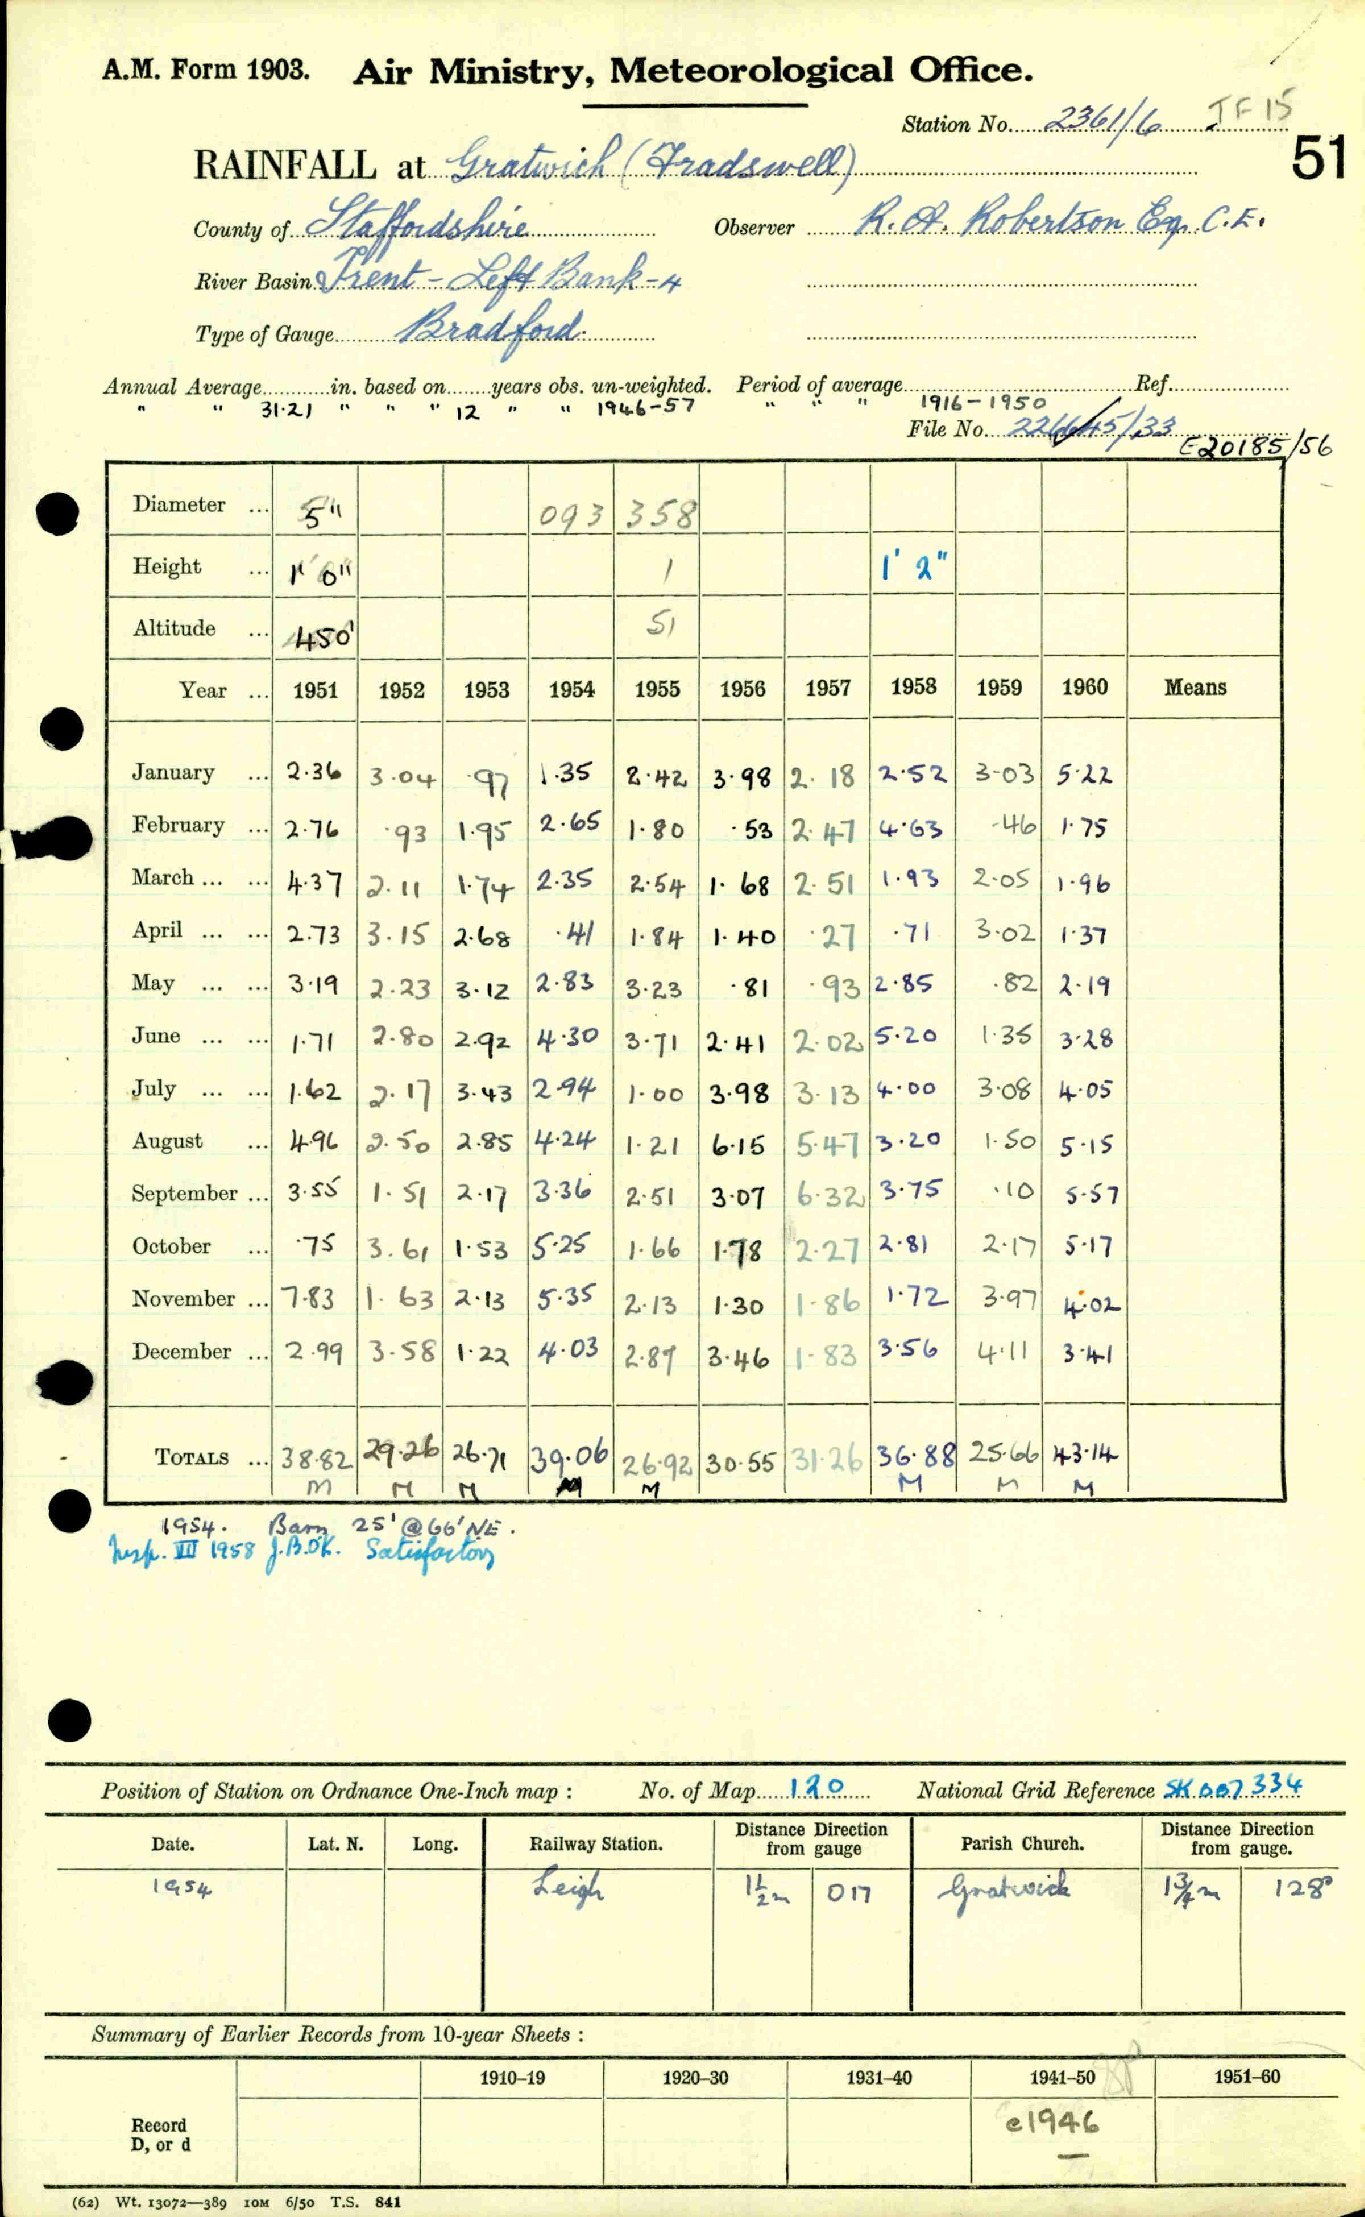 A.M. Form 1903. Air Ministry, Meteorological Office.
Station No. 2361/6
51
RAINFALL at Gratwich (Fradswell)
County of Staffordshire Observer R. A. Robertson Esq. C.E.
River Basin Trent - Left Bank - 4
Type of Gauge Bradford.
Annual Average in. based on years obs. un-weighted. Period of average Ref.
" " 31.21 " " " 12 " " 1946-57 " " " 1916-1950
File No. /33
E20185/56
Diameter ... 5" 093 358
Height ... 1' 0" 1 1' 2"
Altitude ... 450' 51
Year ... 1951 1952 1953 1954 1955 1956 1957 1958 1959 1960 Means
January ... 2.36 3.04 .97 1.35 2.42 3.98 2.18 2.52 3.03 5.22
February ... 2.76 .93 1.95 2.65 1.80 .53 2.47 4.63 .46 1.75
March ... ... 4.37 2.11 1.74 2.35 2.54 1.68 2.51 1.93 2.05 1.96
April ... ... 2.73 3.15 2.68 .41 1.84 1.40 .27 .71 3.02 1.37
May ... ... 3.19 2.23 3.12 2.83 3.23 .81 .93 2.85 .82 2.19
June ... ... 1.71 2.80 2.92 4.30 3.71 2.41 2.02 5.20 1.35 3.28
July ... ... 1.62 2.17 3.43 2.94 1.00 3.98 3.13 4.00 3.08 4.05
August ... 4.96 2.50 2.85 4.24 1.21 6.15 5.47 3.20 1.50 5.15
September ... 3.55 1.51 2.17 3.36 2.51 3.07 6.32 3.75 .10 5.57
October ... .75 3.61 1.53 5.25 1.66 1.78 2.27 2.81 2.17 5.17
November ... 7.83 1.63 2.13 5.35 2.13 1.30 1.86 1.72 3.97 4.02
December ... 2.99 3.58 1.22 4.03 2.87 3.46 1.83 3.56 4.11 3.41
TOTALS ... 38.82 29.26 26.71 39.06 26.92 30.55 31.26 36.88 25.66 43.14
M M M M M M M M
1954. Barn 25' @ 66' NE.
Insp. III 1958 J.B.O'K. Satisfactory
Position of Station on Ordnance One-Inch map : No. of Map 120 National Grid Reference SK 007 334
Date. Lat. N. Long. Railway Station. Distance Direction from gauge Parish Church. Distance Direction from gauge.
1954 Leigh 1½m 017 Gratwich 1¾m 128°
Summary of Earlier Records from 10-year Sheets :
1910-19 1920-30 1931-40 1941-50 1951-60
Record
D, or d
c1946
(62) Wt. 13072—389 10M 6/50 T.S. 841